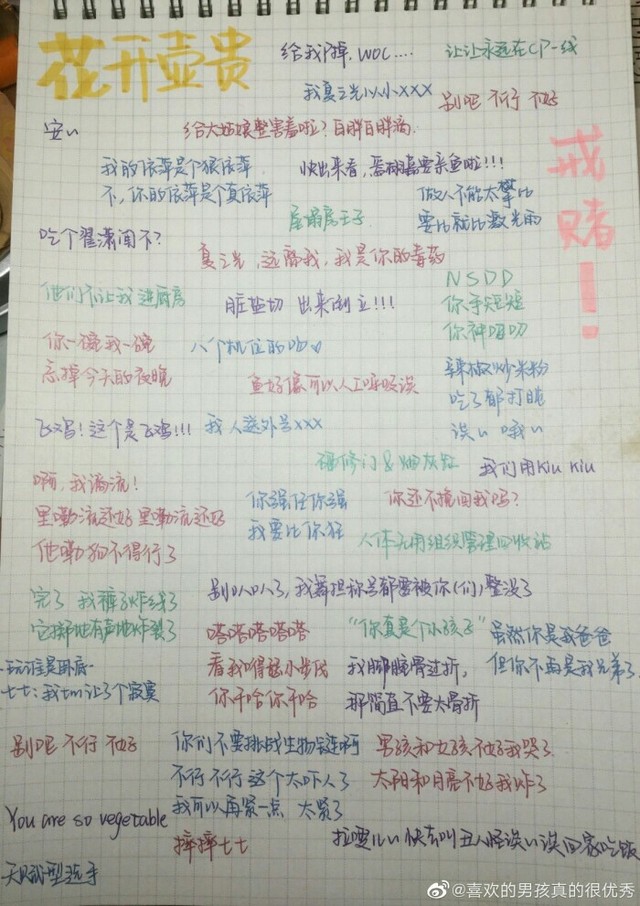 花开壶贵
给我停掉.woc....
让让永远在CP一线
我夏之光以小xxx
别吧 不行 不好
安い
给大姑娘整害羞啦?白胖白胖滴.
戒赌!
我的依萍是个狠依萍
不,你的依萍是个真依萍
快出来看,要亲鱼啦!!!
做人不能太攀比
要比就比激光雨
屋塌房王子
吃个翟潇闻不?
夏之光,远离我,我是你的毒药
他们不让我进厨房
脏盐切 出来倒立!!!
NSDD
你手短短
你神叨叨
你一碗我一碗
忘掉今天的夜晚
八个机位的呦
鱼好像可以人工呼吸诶
辣椒炒米粉
吃了都打盹
诶い 哦い
飞鸡!这个是飞鸡!!!
我人送外号xxx
研修门&烟灰缸
我们用kiu kiu
啊,我滴流!
里嘞流还好里嘞流还好
他嘞狗不得行了
你强任你强
我要比你狂
你还不搀回我吗?
人体无用组织管理回收站
完了 我裤子炸线了
它掷地有声地炸裂了
别叭叭了,我舞担称号都要被你(们)整没了
嗒嗒嗒嗒嗒
看我嘚起小步伐
你干哈你干哈
“你真是个小孩子”
虽然你是我爸爸
但你不再是我兄弟了
我脚腕骨过折,
那简直不要太骨折
-玩谁是卧底-
七七:我tm让了个寂寞
别吧 不行 不好
你们不要挑战生物链啊
不行 不行 这个太吓人了
我可以再紧一点 太紧了
男孩和女孩不好我哭了
太阳和月亮不好我炸了
You are so vegetable
摔摔七七
拉嘤儿い 快去叫丑人怪诶い 诶 回家吃饭
天赋型选手
@喜欢的男孩真的很优秀